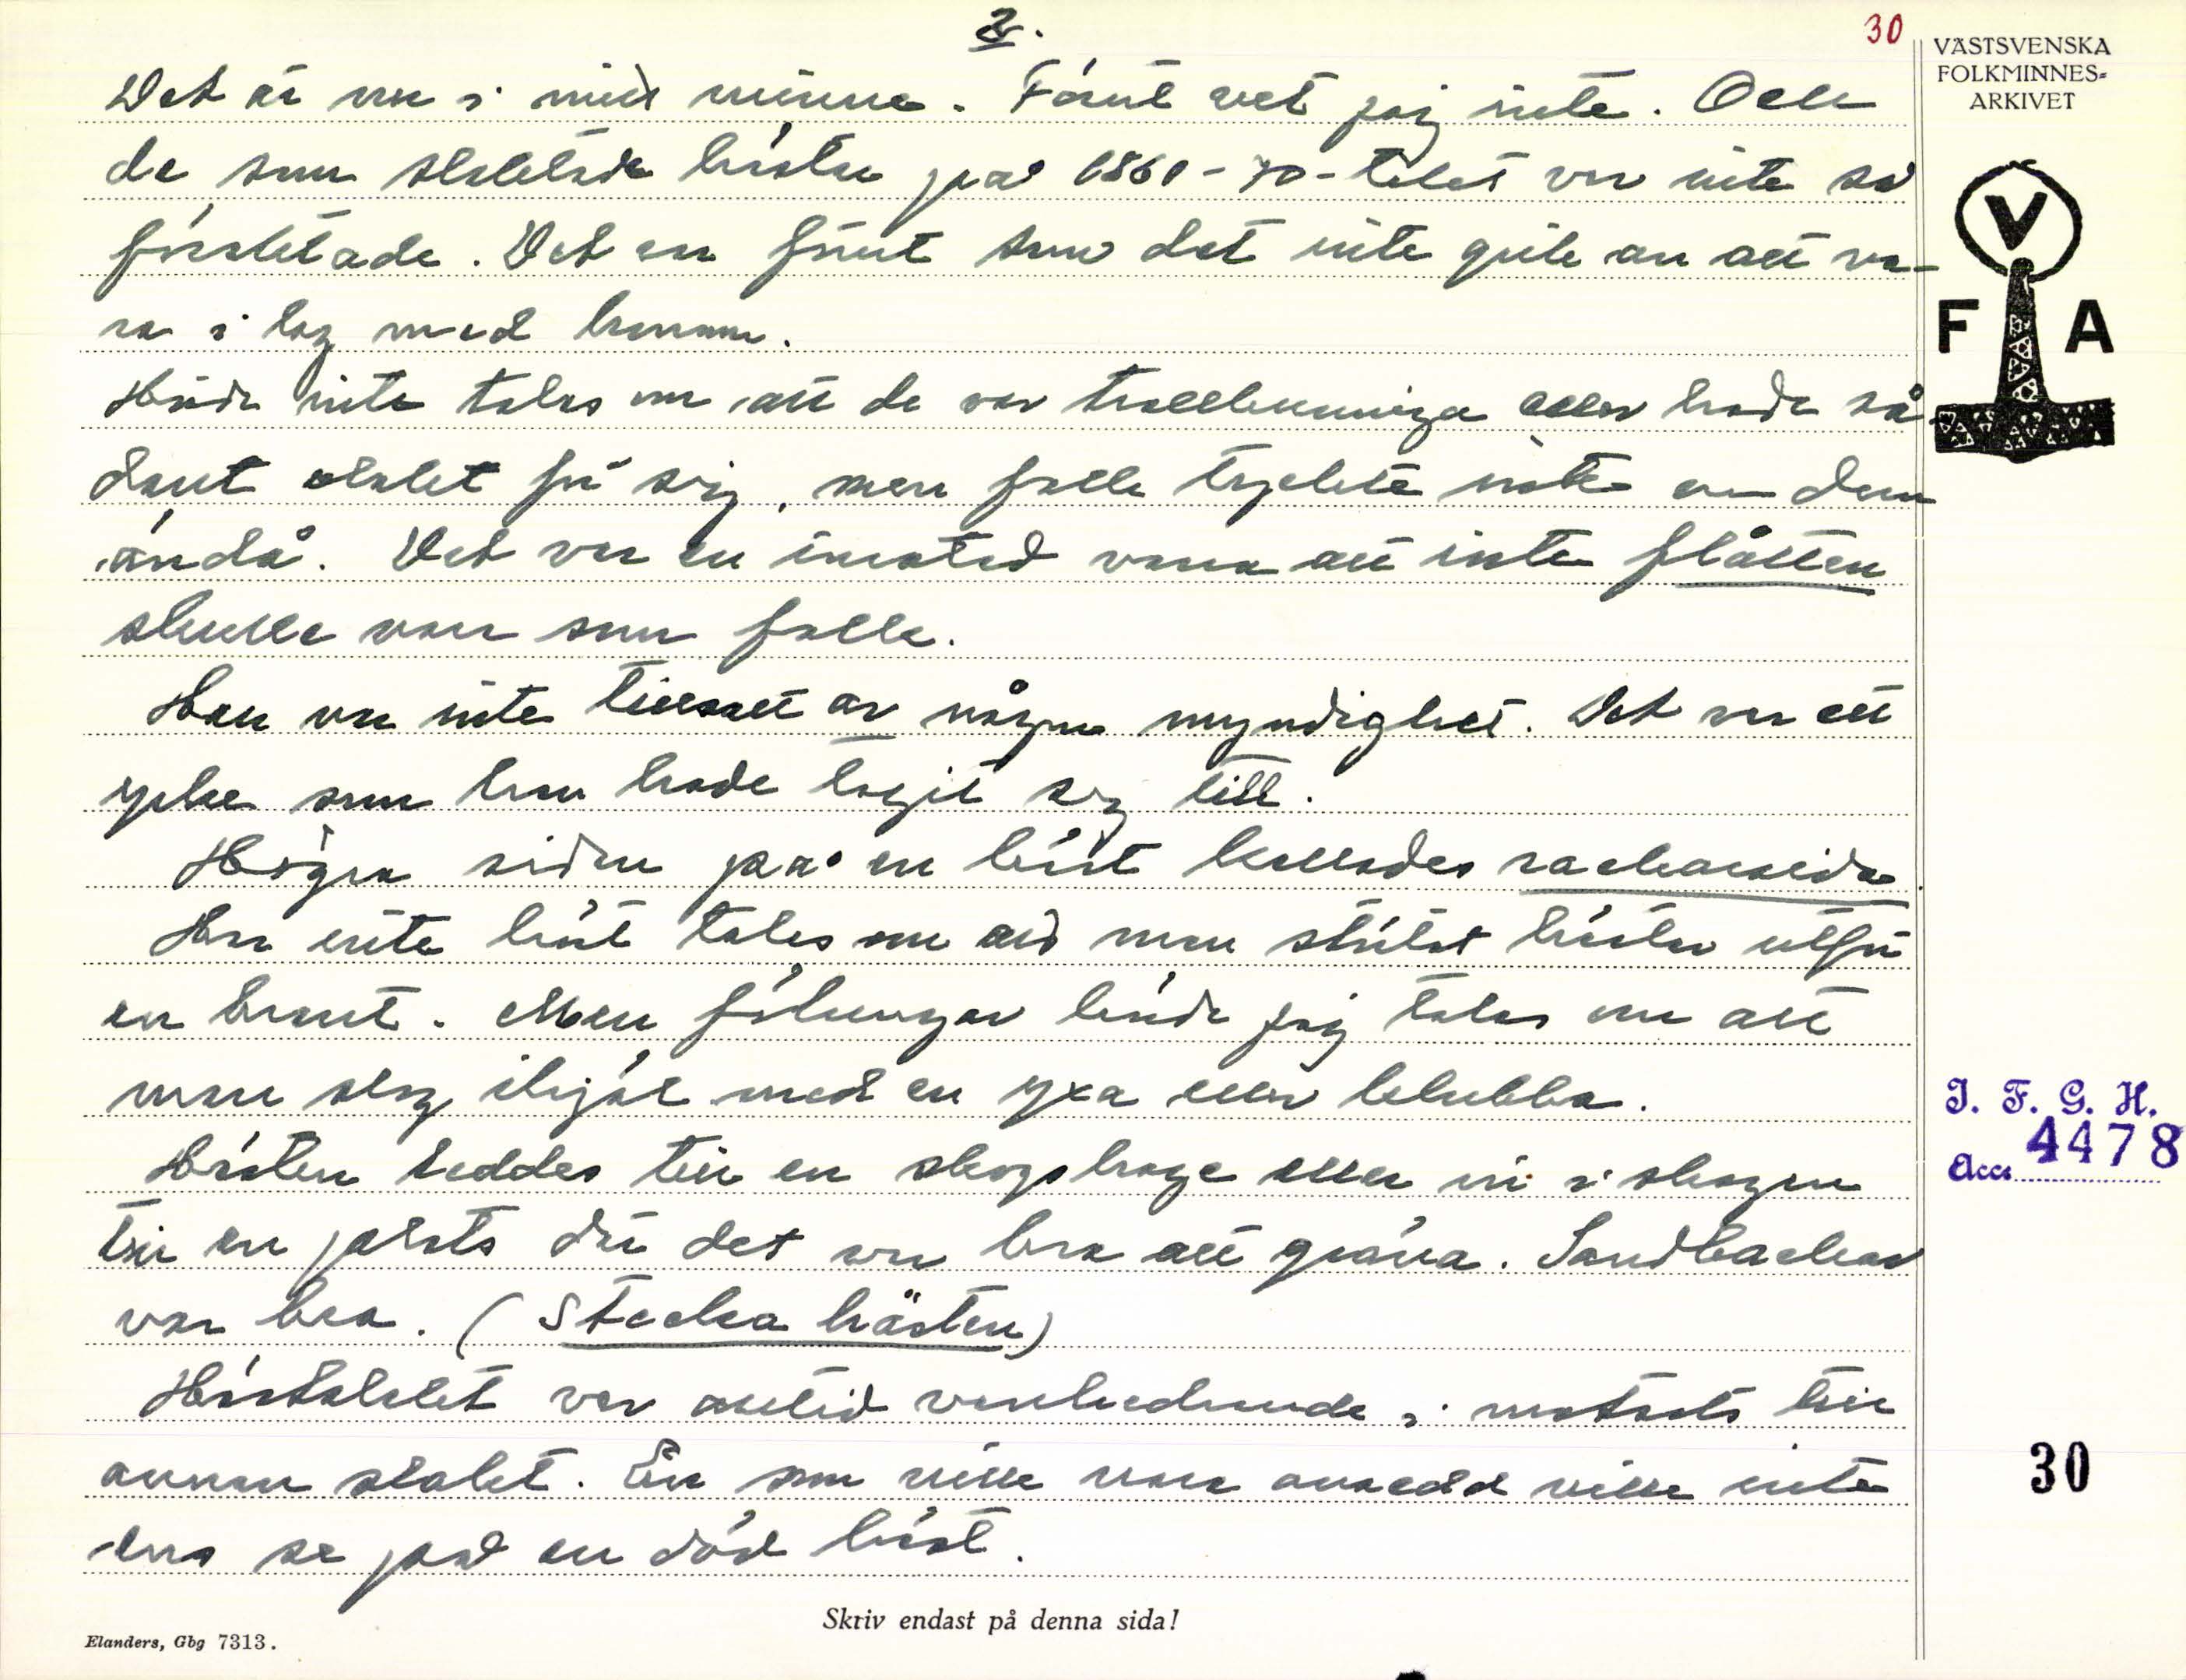 2.
30
VÄSTSVENSKA
FOLKMINNES-
ARKIVET
V
F A
Det är nu i mitt minne. Förut vet jag inte. Och
de som slaktade hästar på 1860-70-talet var inte så
föraktade. Det var förut som det inte gick an att va-
ra i lag med honom.
Hörde inte talas om att de var trollkunniga eller hade så-
dant släkt för sig, men folk tyckte inte om dem
ändå. Det var en inrotad vana att inte flåtten
skulle vara som folk.
Han var inte tillsatt av någon myndighet. Det var ett
yrke som han hade tagit sig till.
Högra sidan på en häst kallades rackarsida.
Har inte hört talas om att man störtat hästar utför
en brant. Men fölungar hörde jag talas om att
man slog ihjäl med en yxa eller klubba.
Hästen leddes till en skogshage eller in i skogen
till en plats där det var bra att gräva. Sandbackar
var bra. (Stecka hästen)
Hästslaktet var alltid vanhedrande i motsats till
annan slakt. En som ville vara ansedd ville inte
ens se på en död häst.
I. F. G. H.
Acc. 4478
30
Skriv endast på denna sida!
Elanders, Gbg 7313.